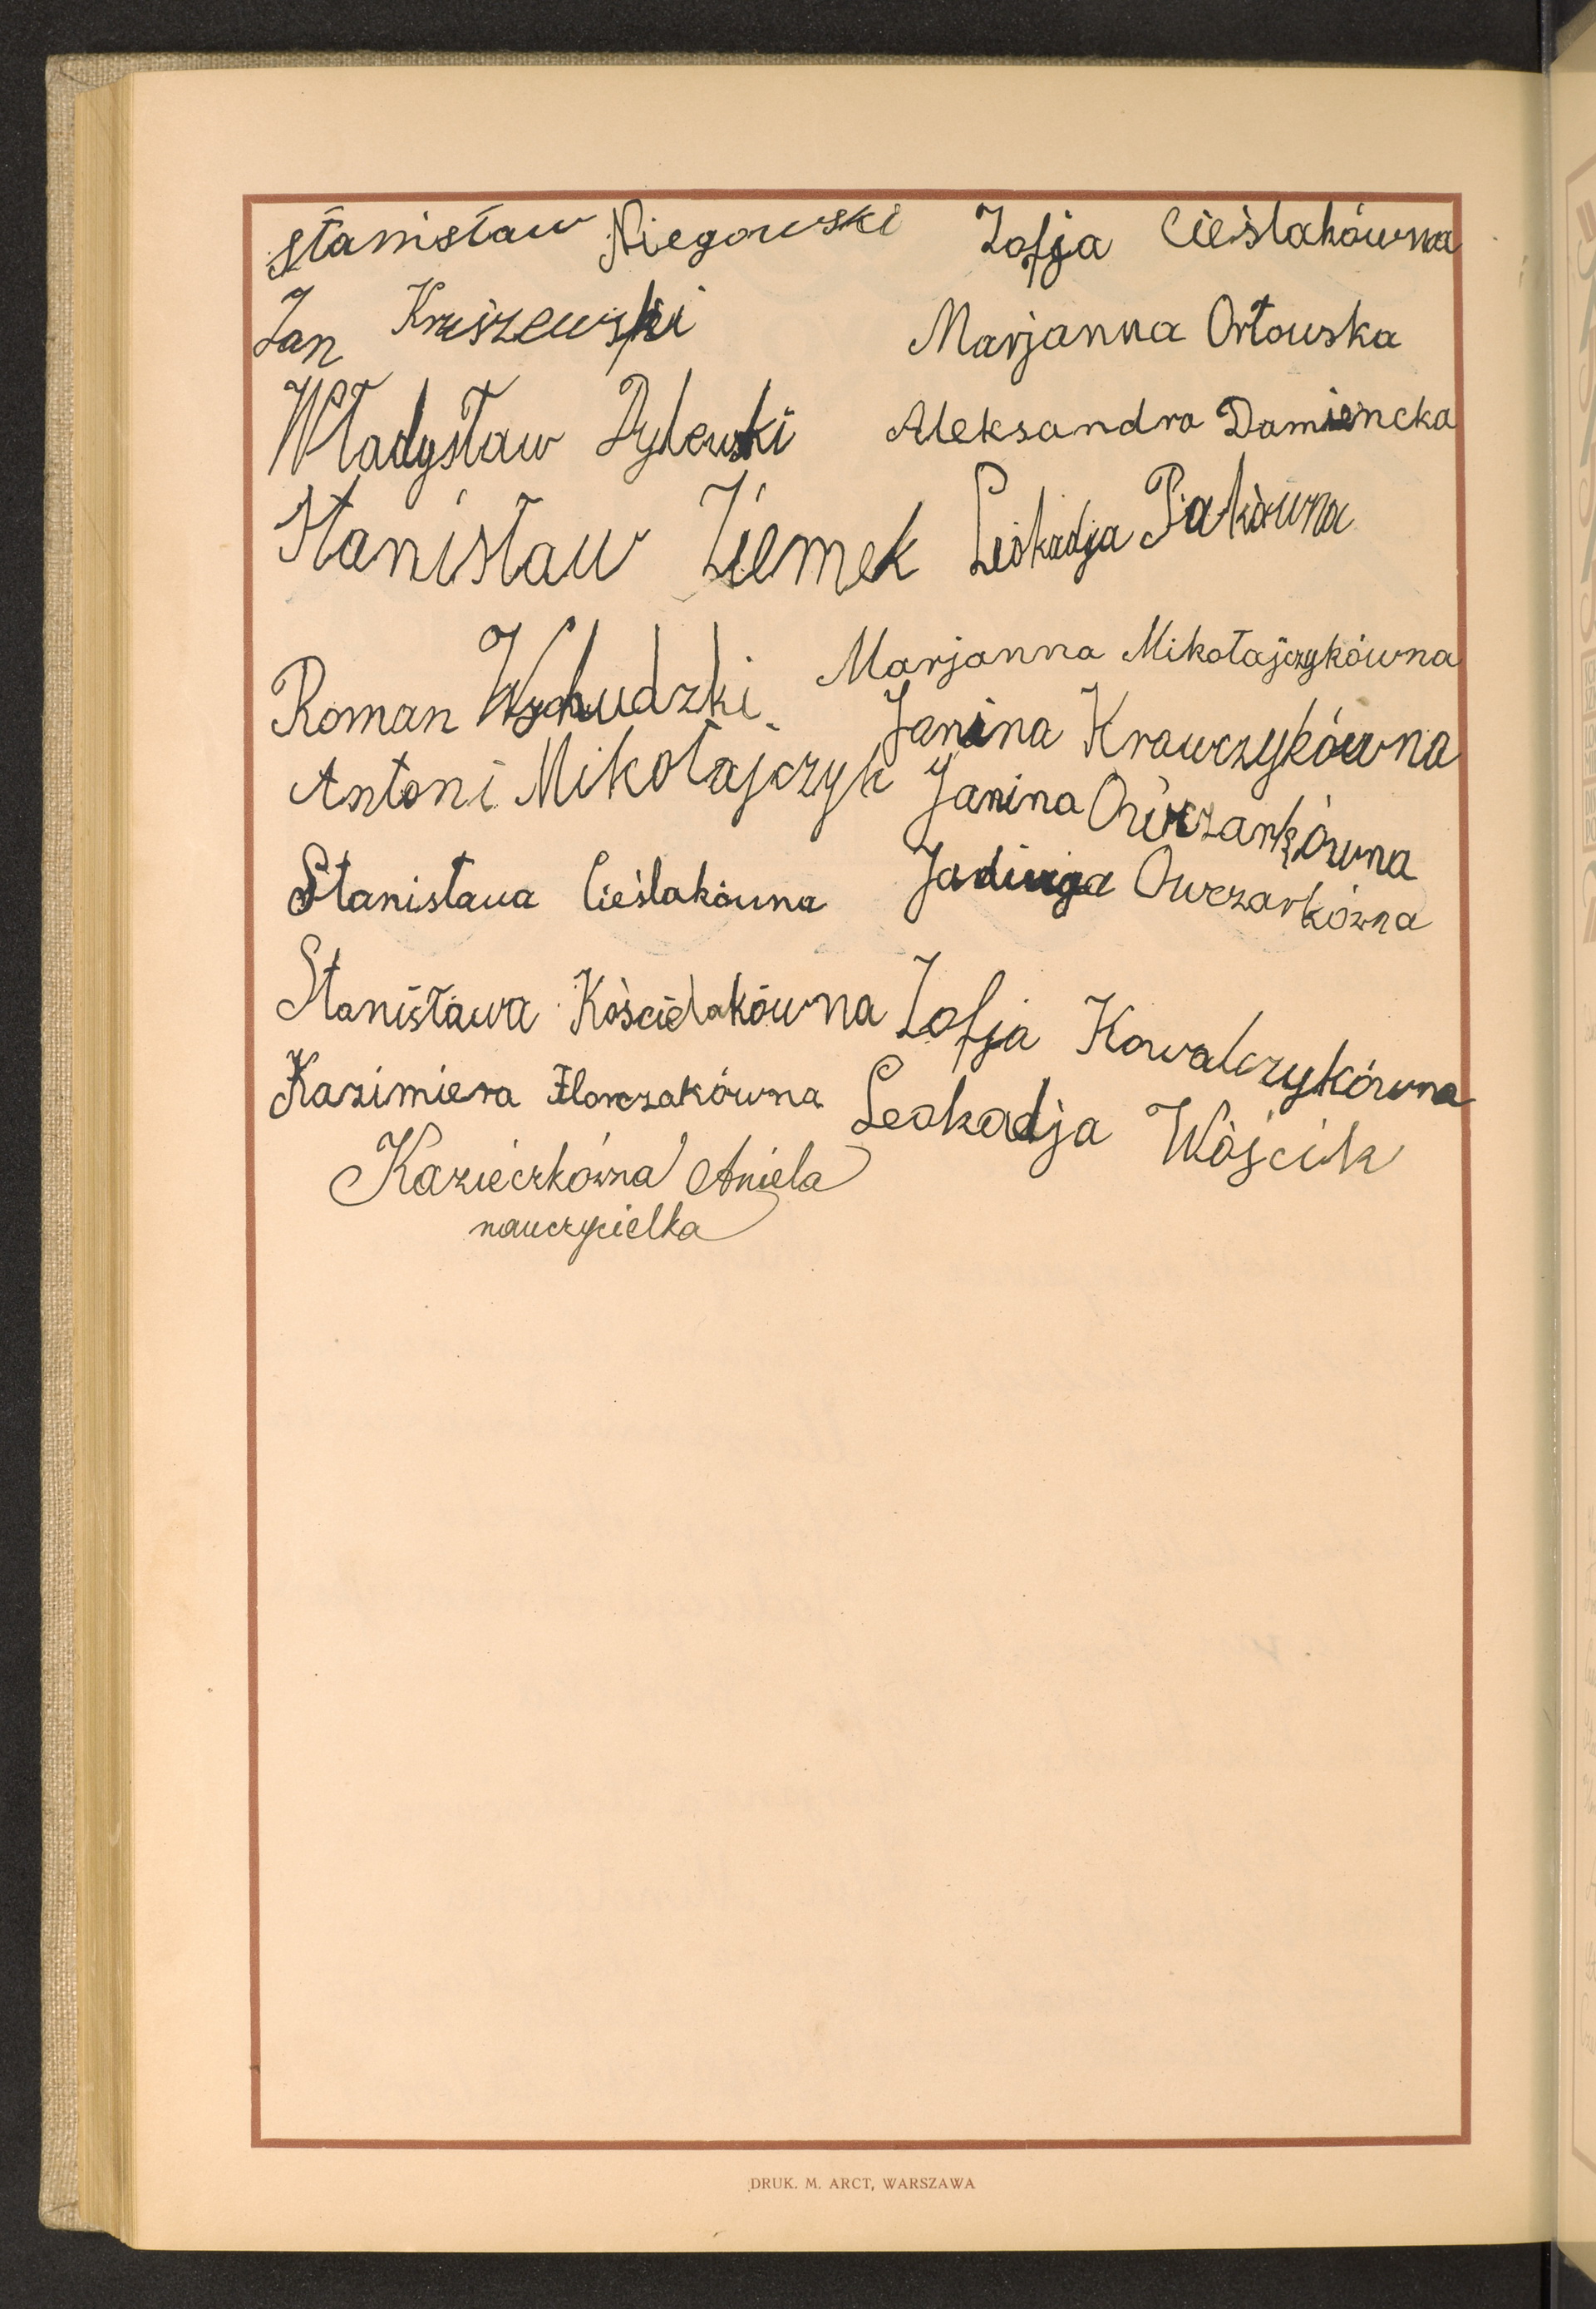 Stanisław Niegowski
Jan Kruszewski
Władysław Dylewski
Stanisław Ziemek
Roman
Antoni Mikołajczyk
Stanisława Cieślakówna
Stanisława Kościelakówna
Kazimiera Florczakówna
Kazieczkówna Aniela
nauczycielka
Zofja Cieślakówna
Marjanna Orłowska
Aleksandra Damiencka
Leokadja Piakówna
Marjanna Mikołajczykówna
Janina Krawczykówna
Janina Owczarkówna
Jadwiga Owczarkówna
Zofja Kowalczykówna
Leokadja Wójcik
DRUK. M. ARCT, WARSZAWA